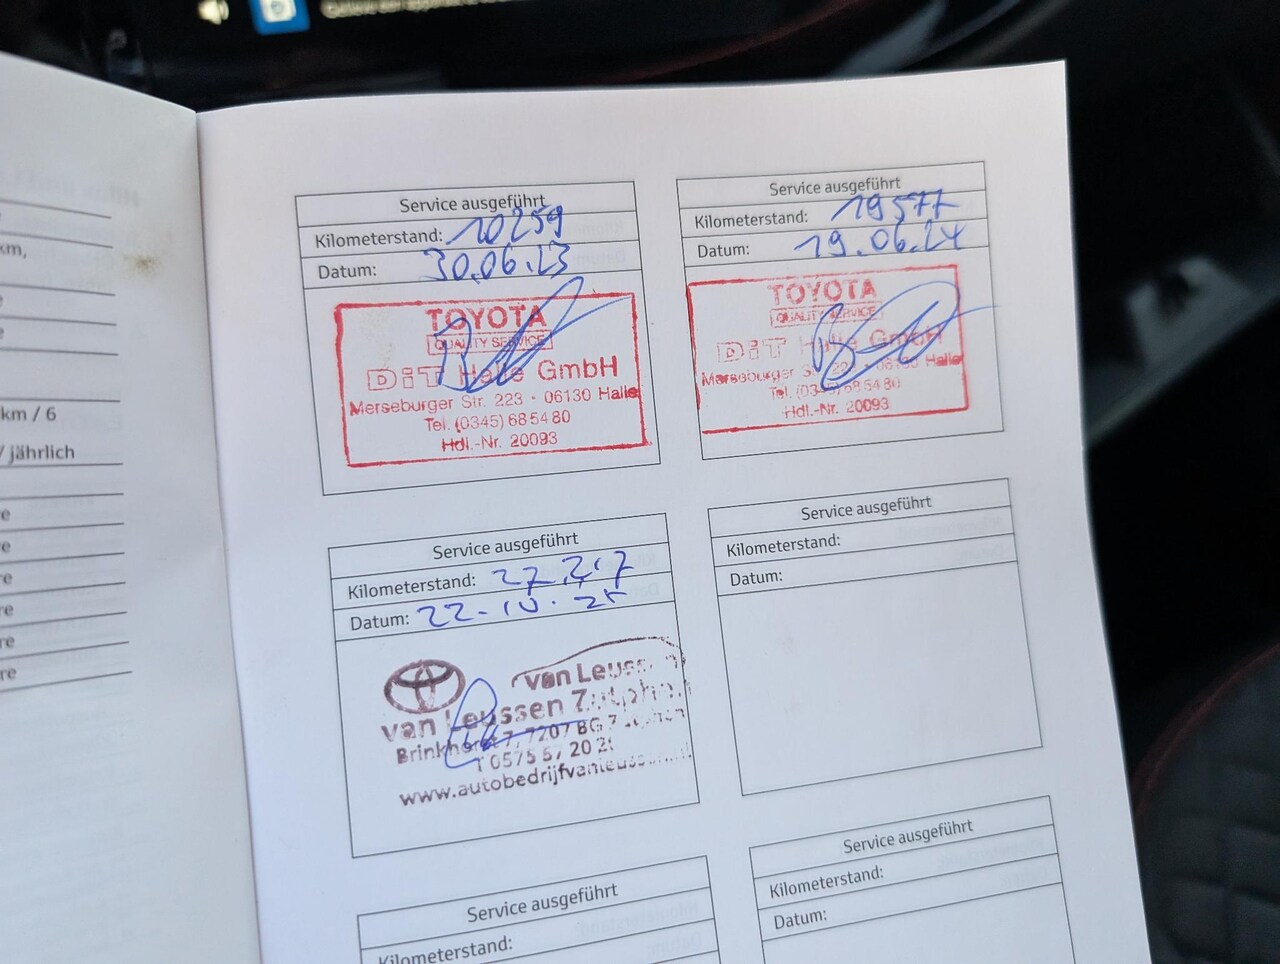 km,
km / 6
/ jährlich
Service ausgeführt
Kilometerstand: 10259
Datum: 30.06.23
TOYOTA
QUALITY SERVICE
DiT Halle GmbH
Merseburger Str. 223 · 06130 Halle
Tel. (0345) 68 54 80
Hdl.-Nr. 20093
Service ausgeführt
Kilometerstand: 19577
Datum: 19.06.24
TOYOTA
QUALITY SERVICE
DiT Halle GmbH
Merseburger Str. 223 · 06130 Halle
Tel. (0345) 68 54 80
Hdl.-Nr. 20093
Service ausgeführt
Kilometerstand: 27.217
Datum: 22-10-25
van Leussen
van Leussen Zutphen
Brinkhorst 7, 7207 BG Zutphen
T 0575 57 20 2
www.autobedrijfvanleuss
Service ausgeführt
Kilometerstand:
Datum:
Service ausgeführt
Kilometerstand:
Service ausgeführt
Kilometerstand:
Datum: